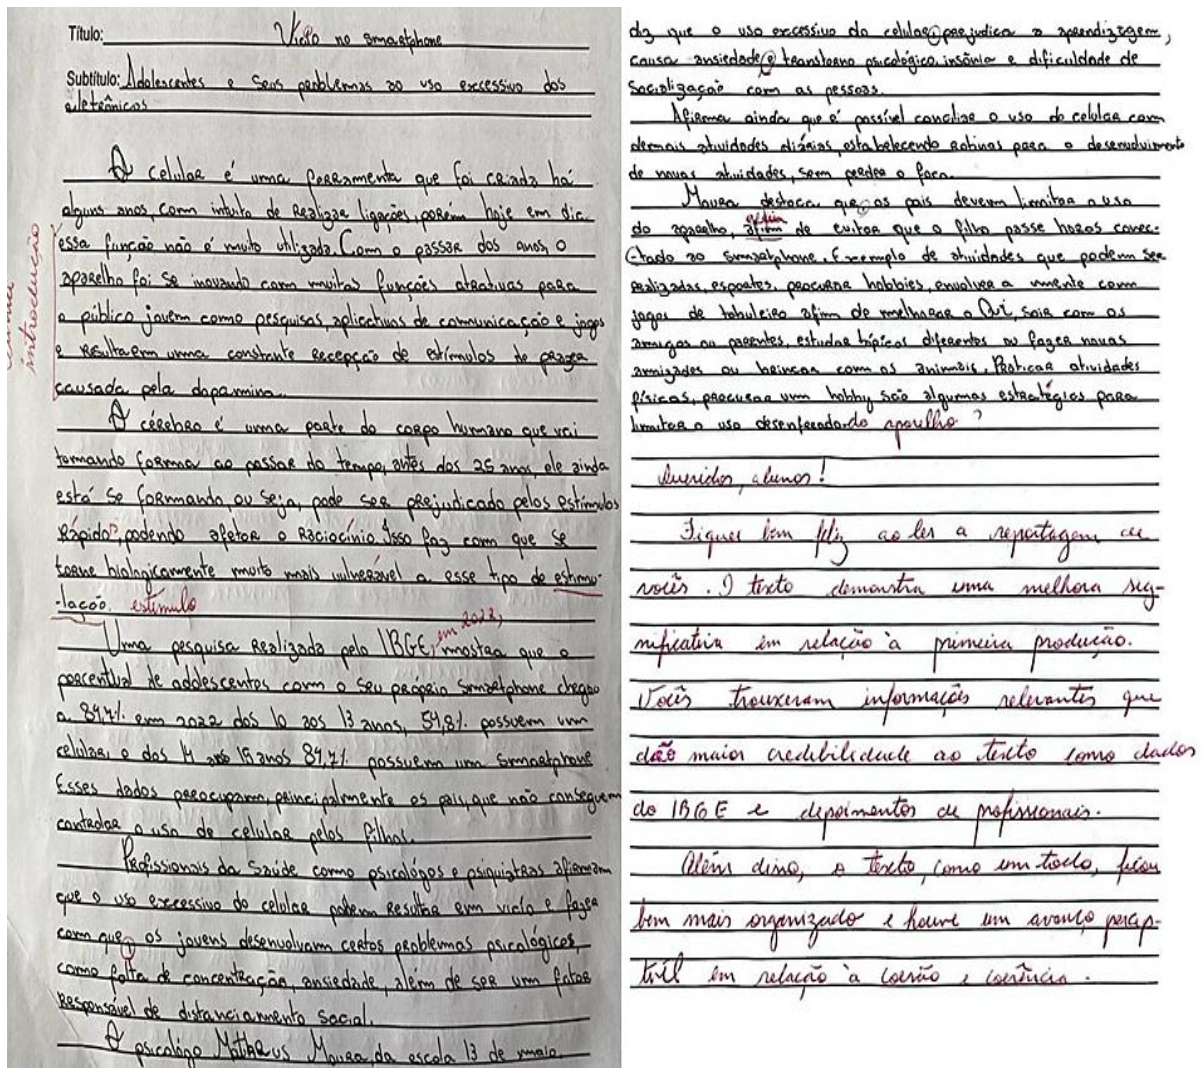 Título: Vicio no smartphone
Subtítulo: Adolescentes e seus problemas ao uso excessivo dos
eletrônicos
O celular é uma ferramenta que foi criada há
alguns anos, com intuito de realizar ligações, porém hoje em dia
essa função não é muito utilizada. Com o passar dos anos, o
aparelho foi se inovando com muitas funções atrativas para
o público jovem como pesquisas, aplicativos de comunicação e jogos
e resulta em uma constante recepção de estímulos de prazer
causada pela dopamina.
introdução
O cérebro é uma parte do corpo humano que vai
tomando forma ao passar do tempo, antes dos 25 anos, ele ainda
está se formando, ou seja, pode ser prejudicado pelos estímulos
rápidos, podendo afetar o raciocínio. Isso faz com que se
torne biologicamente muito mais vulnerável a esse tipo de estimu-
-lação. estímulo
Uma pesquisa realizada pelo IBGE, em 2022, mostra que o
porcentual de adolescentes com o seu próprio smartphone chegao
a 84,7% em 2022 dos 10 aos 13 anos, 54,8% possuem um
celular, e dos 14 aos 19 anos 84,7% possuem um smartphone
Esses dados preocupam, principalmente os pais, que não conseguem
controlar o uso de celular pelos filhos.
Profissionais da saúde como psicológos e psiquiatras afirmam
que o uso excessivo do celular podem resultar em vicío e fazer
com que, os jovens desenvolvam certos problemas psicológicos,
como falta de concentração, ansiedade, além de ser um fator
responsável de distanciamento social.
O psicológo Matheus Moura, da escola 13 de maio,
diz que o uso excessivo do celular, prejudica a aprendizagem,
causa ansiedade, transtorno psicológico, insônia e dificuldade de
socialização com as pessoas.
Afirma ainda que é possível conciliar o uso do celular com
demais atividades diárias, estabelecendo rotinas para o desenvolvimento
de novas atividades, sem perder o foco.
Moura destaca que, os pais devem limitar o uso
do aparelho, afim a fim de evitar que o filho passe horas conec-
tado ao smartphone. Exemplo de atividades que podem ser
realizadas, esportes, procurar hobbies, envolver a mente com
jogos de tabuleiro afim de melhorar o Qi, sair com os
amigos ou parentes, estudar tópicos diferentes ou fazer novas
amizades ou brincar com os animais. Praticar atividades
físicas, procurar um hobby são algumas estratégias para
limitar o uso desenfreado do aparelho?
Queridos, alunos!
Fiquei bem feliz ao ler a reportagem de
vocês. O texto demonstra uma melhora sig-
nificativa em relação à primeira produção.
Vocês trouxeram informações relevantes que
dão maior credibilidade ao texto como dados
do IBGE e depoimentos de profissionais.
Além disso, o texto, como um todo, ficou
bem mais organizado e houve um avanço percep-
tível em relação à coesão e coerência.